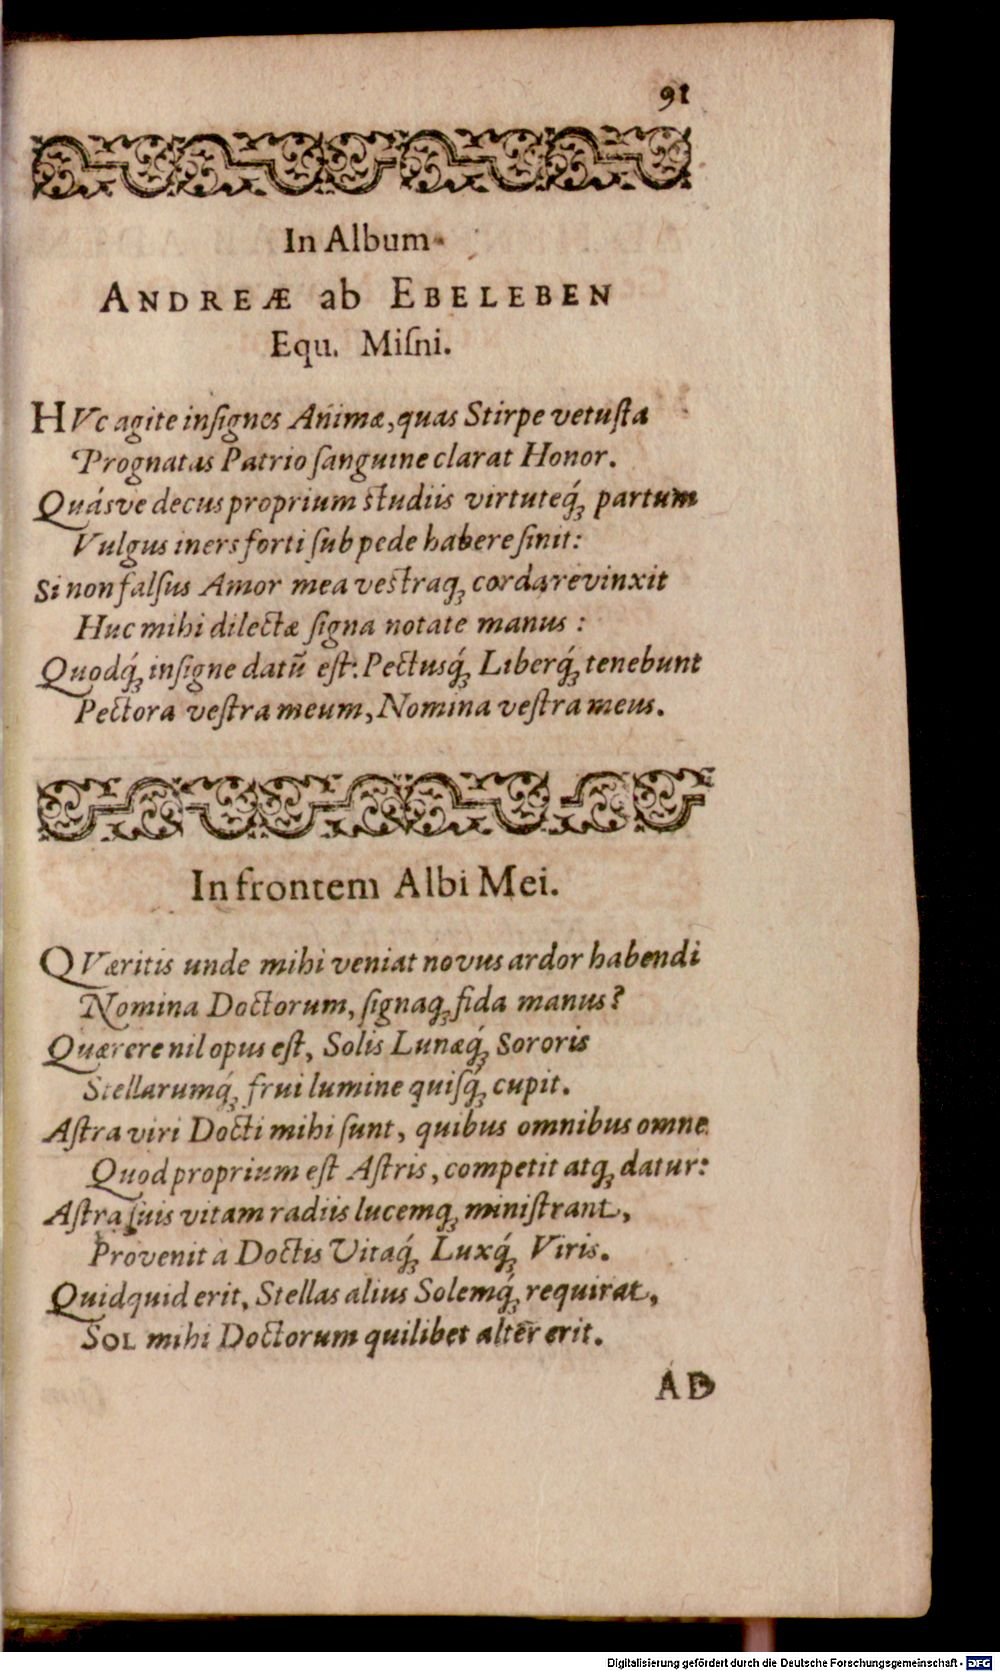 91
In Album
ANDREÆ ab EBELEBEN
Equ. Miſni.
HVc agite inſignes Animæ, quas Stirpe vetuſta
Prognatas Patrio ſanguine clarat Honor.
Quásve decus proprium ſtudiis virtuteq́ꝫ partum
Vulgus iners forti ſub pede habere ſinit:
Si non falſus Amor mea veſtraqꝫ corda revinxit
Huc mihi dilectæ ſigna notate manus:
Quodq́ꝫ inſigne datū eſt: Pectusq́ꝫ Liberq́ꝫ tenebunt
Pectora veſtra meum, Nomina veſtra meus.
In frontem Albi Mei.
QVæritis unde mihi veniat novus ardor habendi
Nomina Doctorum, ſignaqꝫ fida manus?
Quærere nil opus eſt, Solis Lunæq́ꝫ Sororis
Stellarumq́ꝫ frui lumine quiſq́ꝫ cupit.
Aſtra viri Docti mihi ſunt, quibus omnibus omne
Quod proprium eſt Aſtris, competit atqꝫ datur:
Aſtra ſuis vitam radiis lucemqꝫ miniſtrant,
Provenit à Doctis Vitaq́ꝫ Luxq́ꝫ Viris.
Quidquid erit, Stellas alius Solemq́ꝫ requirat,
SOL mihi Doctorum quilibet alter erit.
AD
Digitalisierung gefördert durch die Deutsche Forschungsgemeinschaft - DFG